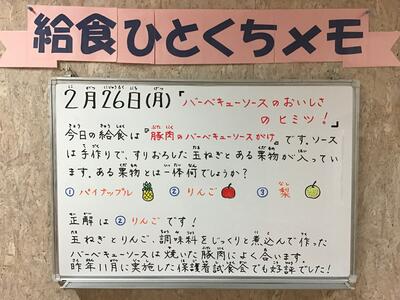 給食ひとくちメモ
2月26日(月)「バーベキューソースのおいしさ
のヒミツ!
今日の給食は『豚肉のバーベキューソースがけ』です。ソース
は手作りで、すりおろした玉ねぎとある果物が入ってい
ます。ある果物とは一体何でしょうか?
① パイナップル ② りんご ③ 梨
正解は ② りんご です!
玉ねぎとりんご、調味料をじっくりと煮込んで作った
バーベキューソースは焼いた豚肉によく合います。
昨年11月に実施した保護者試食会でも好評でした!